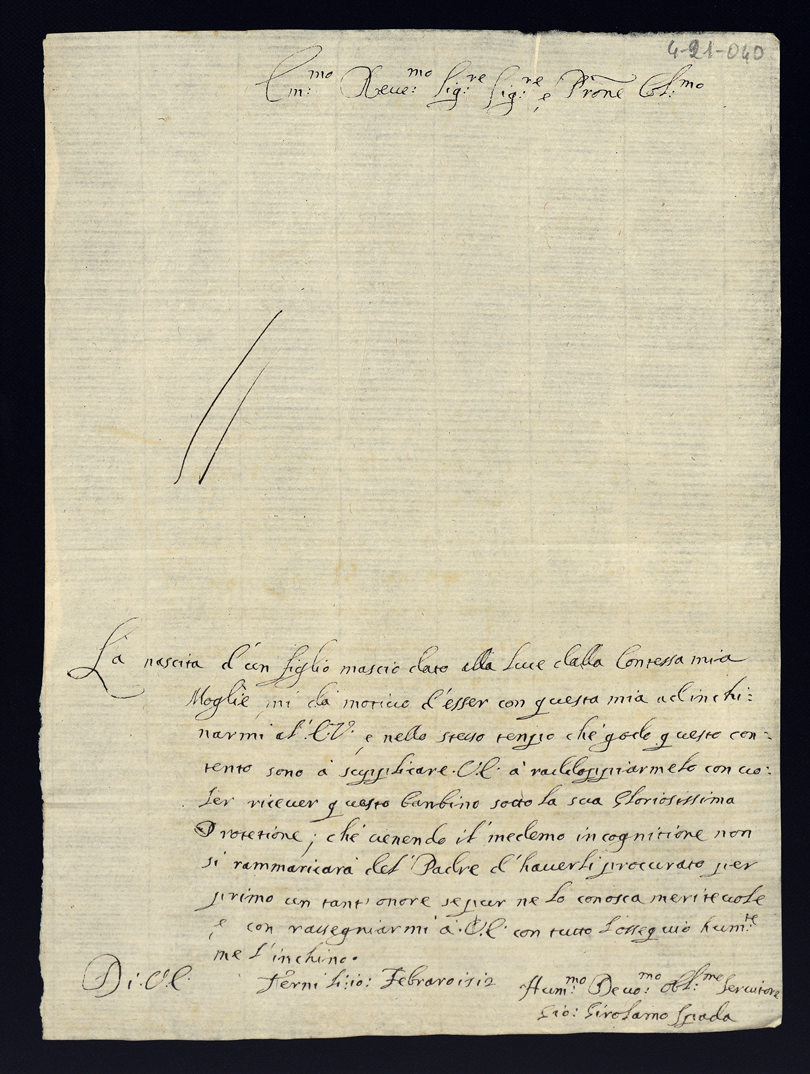 4-21-040
Em:mo Reue:mo Sig:re Sig:re e Prõne Col:mo
La nascita d'un figlio mascio dato alla luce dalla Contessa mia
Moglie mi dà motiuo d'esser con questa mia ad inchi:
narmi al' E.V. e nello stesso tempo che godo questo con=
tento sono à supplicare V.E. à raddoppiarmelo con uo:
ler riceuer questo bambino sotto la sua Gloriosissima
Protetione; ché uenendo il' medemo in cognitione non
si rammaricarà del' Padre d'hauerli procurato per
primo un tant' onore se pur ne lo conosca meriteuole
e con rassegniarmi à V.E. con tutto l'ossequio hum:te
me l'inchino.
Di V.E.
Terni li: 10: Febraro
Hum:mo Deuo:mo Obl:mo Seruitore
Gio: Girolamo Spada